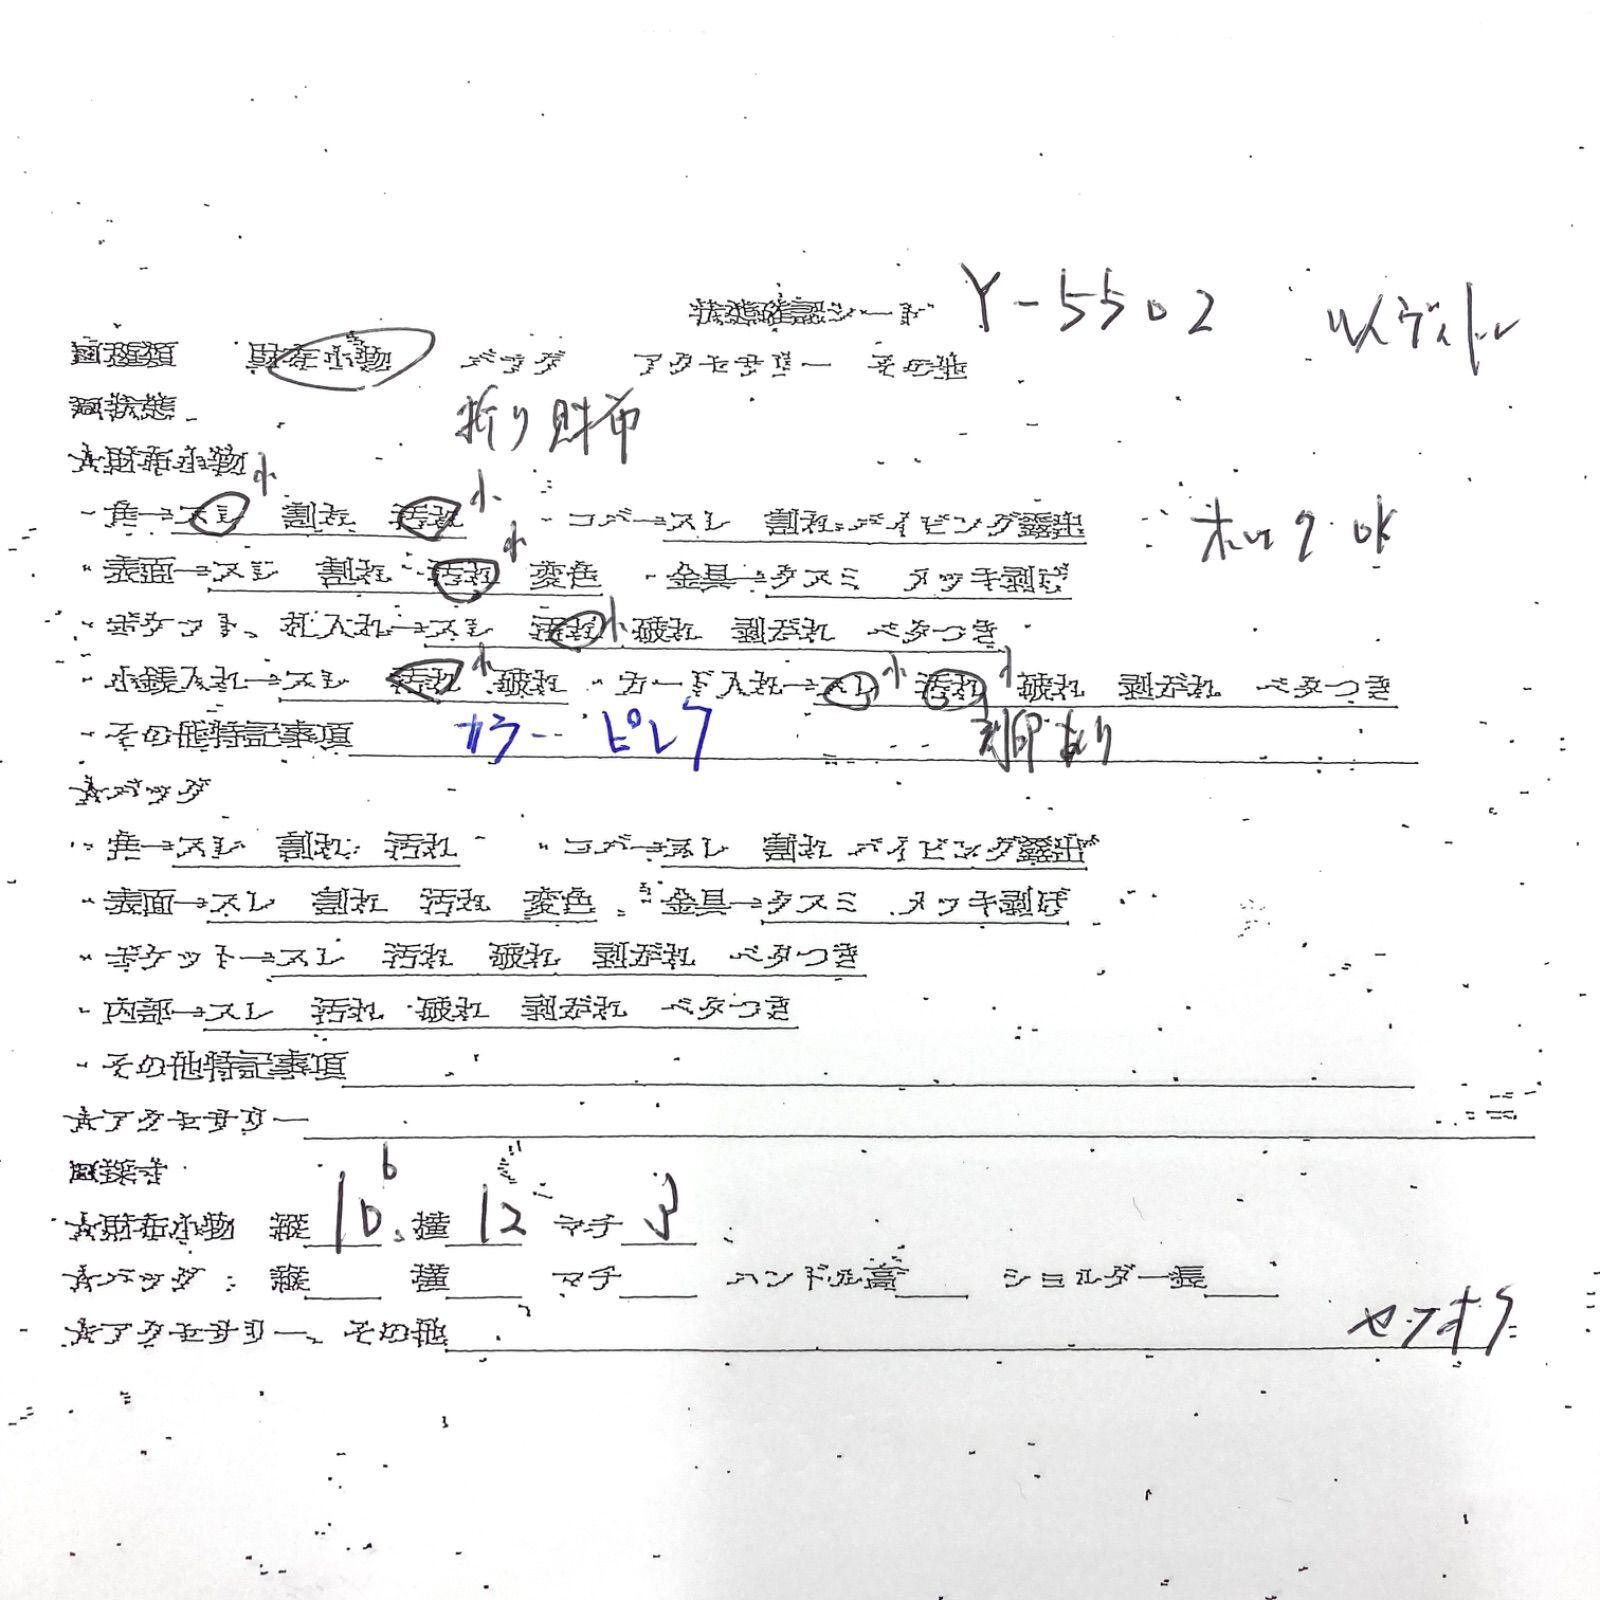 状態確認シート Y-5502 ルイヴィトン
□種類 財布小物 バッグ アクセサリー その他
□状態
折り財布
☆財布小物
・角→スレ 小 割れ 汚れ 小 ・コバ→スレ 割れ パイピング露出
ホック OK
・表面→スレ 割れ 汚れ 小 変色 ・金具→クスミ メッキ剥げ
・ポケット、札入れ→スレ 汚れ 小 破れ 剥がれ ベタつき
・小銭入れ→スレ 汚れ 小 破れ ・カード入れ→スレ 小 汚れ 小 破れ 剥がれ ベタつき
・その他特記事項 カラー ピレア 刻印あり
☆バッグ
・角→スレ 割れ 汚れ ・コバ→スレ 割れ パイピング露出
・表面→スレ 割れ 汚れ 変色 ・金具→クスミ メッキ剥げ
・ポケット→スレ 汚れ 破れ 剥がれ ベタつき
・内部→スレ 汚れ 破れ 剥がれ ベタつき
・その他特記事項
☆アクセサリー
□採寸
☆財布小物 縦 10.6 横 12 マチ 3
☆バッグ 縦 横 マチ ハンドル高 ショルダー長
☆アクセサリー、その他